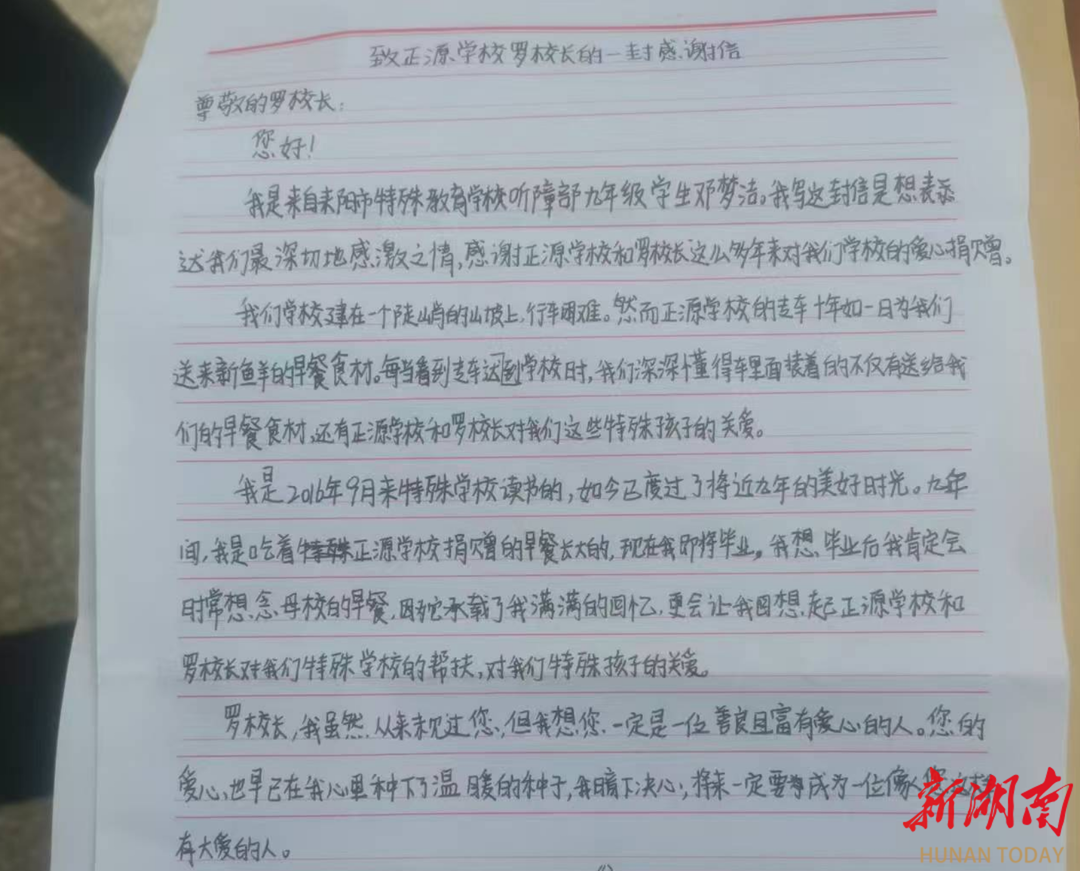 致正源学校罗校长的一封感谢信
尊敬的罗校长:
您好!
我是来自耒阳市特殊教育学校听障部九年级学生邓梦洁。我写这封信是想表
达我们最深切地感激之情,感谢正源学校和罗校长这么多年来对我们学校的爱心捐赠。
我们学校建在一个陡峭的山坡上,行车困难。然而正源学校的专车十年如一日为我们
送来新鲜的早餐食材。每当看到专车达到学校时,我们深深懂得车里面装着的不仅有送给我
们的早餐食材,还有正源学校和罗校长对我们这些特殊孩子的关爱。
我是2016年9月来特殊学校读书的,如今已度过了将近九年的美好时光。九年
间,我是吃着正源学校捐赠的早餐长大的,现在我即将毕业。我想,毕业后我肯定会
时常想念母校的早餐,因它承载了我满满的回忆,更会让我回想起正源学校和
罗校长对我们特殊学校的帮扶,对我们特殊孩子的关爱。
罗校长,我虽然从来未见过您,但我想您一定是一位善良且富有爱心的人。您的
爱心也早已在我心里种下了温暖的种子,我暗下决心,将来一定要成为一位像您这样
有大爱的人。
新湖南
HUNAN TODAY